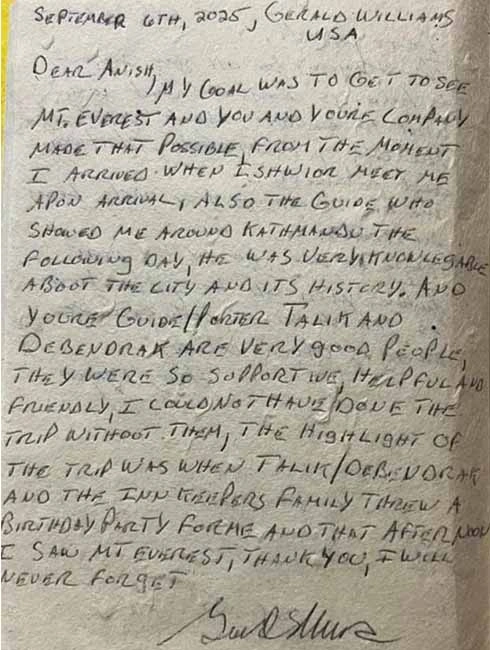 SEPTEMBER 6TH, 2025, GERALD WILLIAMS
USA
DEAR ANISH,
MY GOAL WAS TO GET TO SEE
MT. EVEREST AND YOU AND YOURE COMPANY
MADE THAT POSSIBLE, FROM THE MOMENT
I ARRIVED WHEN ISHWIOR MEET ME
APON ARRIVAL, ALSO THE GUIDE WHO
SHOWED ME AROUND KATHMANDU THE
FOLLOWING DAY, HE WAS VERY KNOWLEGABLE
ABOUT THE CITY AND ITS HISTORY. AND
YOURE GUIDE/PORTER TALIK AND
DEBENDRAK ARE VERY gOOD PEOPLE,
THEY WERE SO SUPPORTIVE, HELPFUL AND
FRIENDLY, I COULD NOT HAVE DONE THE
TRIP WITHOUT THEM, THE HIGHLIGHT OF
THE TRIP WAS WHEN TALIK/DEBENDRAK
AND THE INN KEEPERS FAMILY THREW A
BIRTHDAY PARTY FOR ME AND THAT AFTERNOON
I SAW MT EVEREST, THANK YOU, I WILL
NEVER FORGET